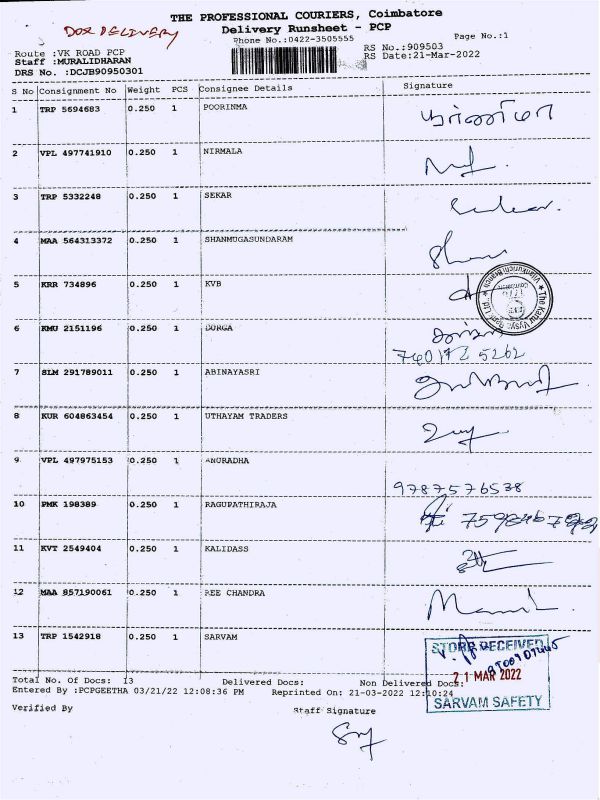 THE PROFESSIONAL COURIERS, Coimbatore
DOX DELIVERY
Delivery Runsheet - PCP
Phone No.:0422-3505555
Page No.:1
Route :VK ROAD PCP
RS No.:909503
Staff :MURALIDHARAN
RS Date:21-Mar-2022
DRS No. :DCJB90950301
S No Consignment No Weight PCS Consignee Details Signature
1 TRP 5694683 0.250 1 POORINMA
2 VPL 497741910 0.250 1 NIRMALA
3 TRP 5332248 0.250 1 SEKAR
4 MAA 564313372 0.250 1 SHANMUGASUNDARAM
5 KRR 734896 0.250 1 KVB
6 KMU 2151196 0.250 1 DURGA
7 SLM 291789011 0.250 1 ABINAYASRI
8 KUR 604863454 0.250 1 UTHAYAM TRADERS
9 VPL 497975153 0.250 1 ANURADHA
9787576538
10 PMK 198389 0.250 1 RAGUPATHIRAJA
11 KVT 2549404 0.250 1 KALIDASS
12 MAA 857190061 0.250 1 REE CHANDRA
13 TRP 1542918 0.250 1 SARVAM
STORE RECEIVED
21 MAR 2022
SARVAM SAFETY
Total No. Of Docs: 13 Delivered Docs: Non Delivered Docs:
Entered By :PCPGEETHA 03/21/22 12:08:36 PM Reprinted On: 21-03-2022 12:10:24
Verified By Staff Signature